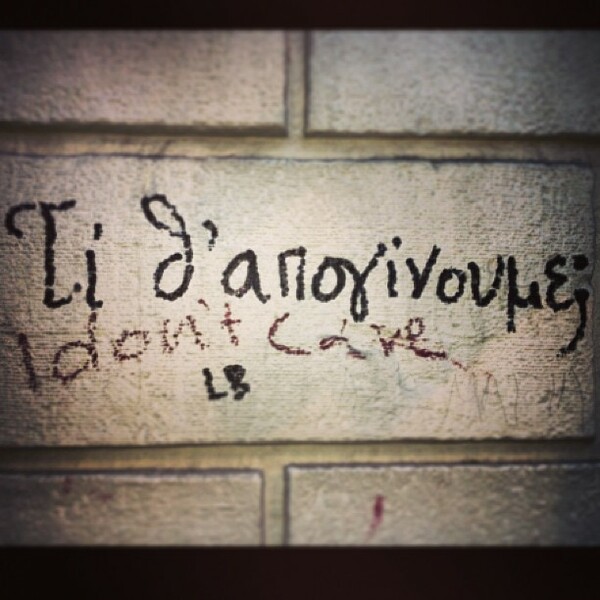 Τί θ'απογίνουμε;
I don't care
LB